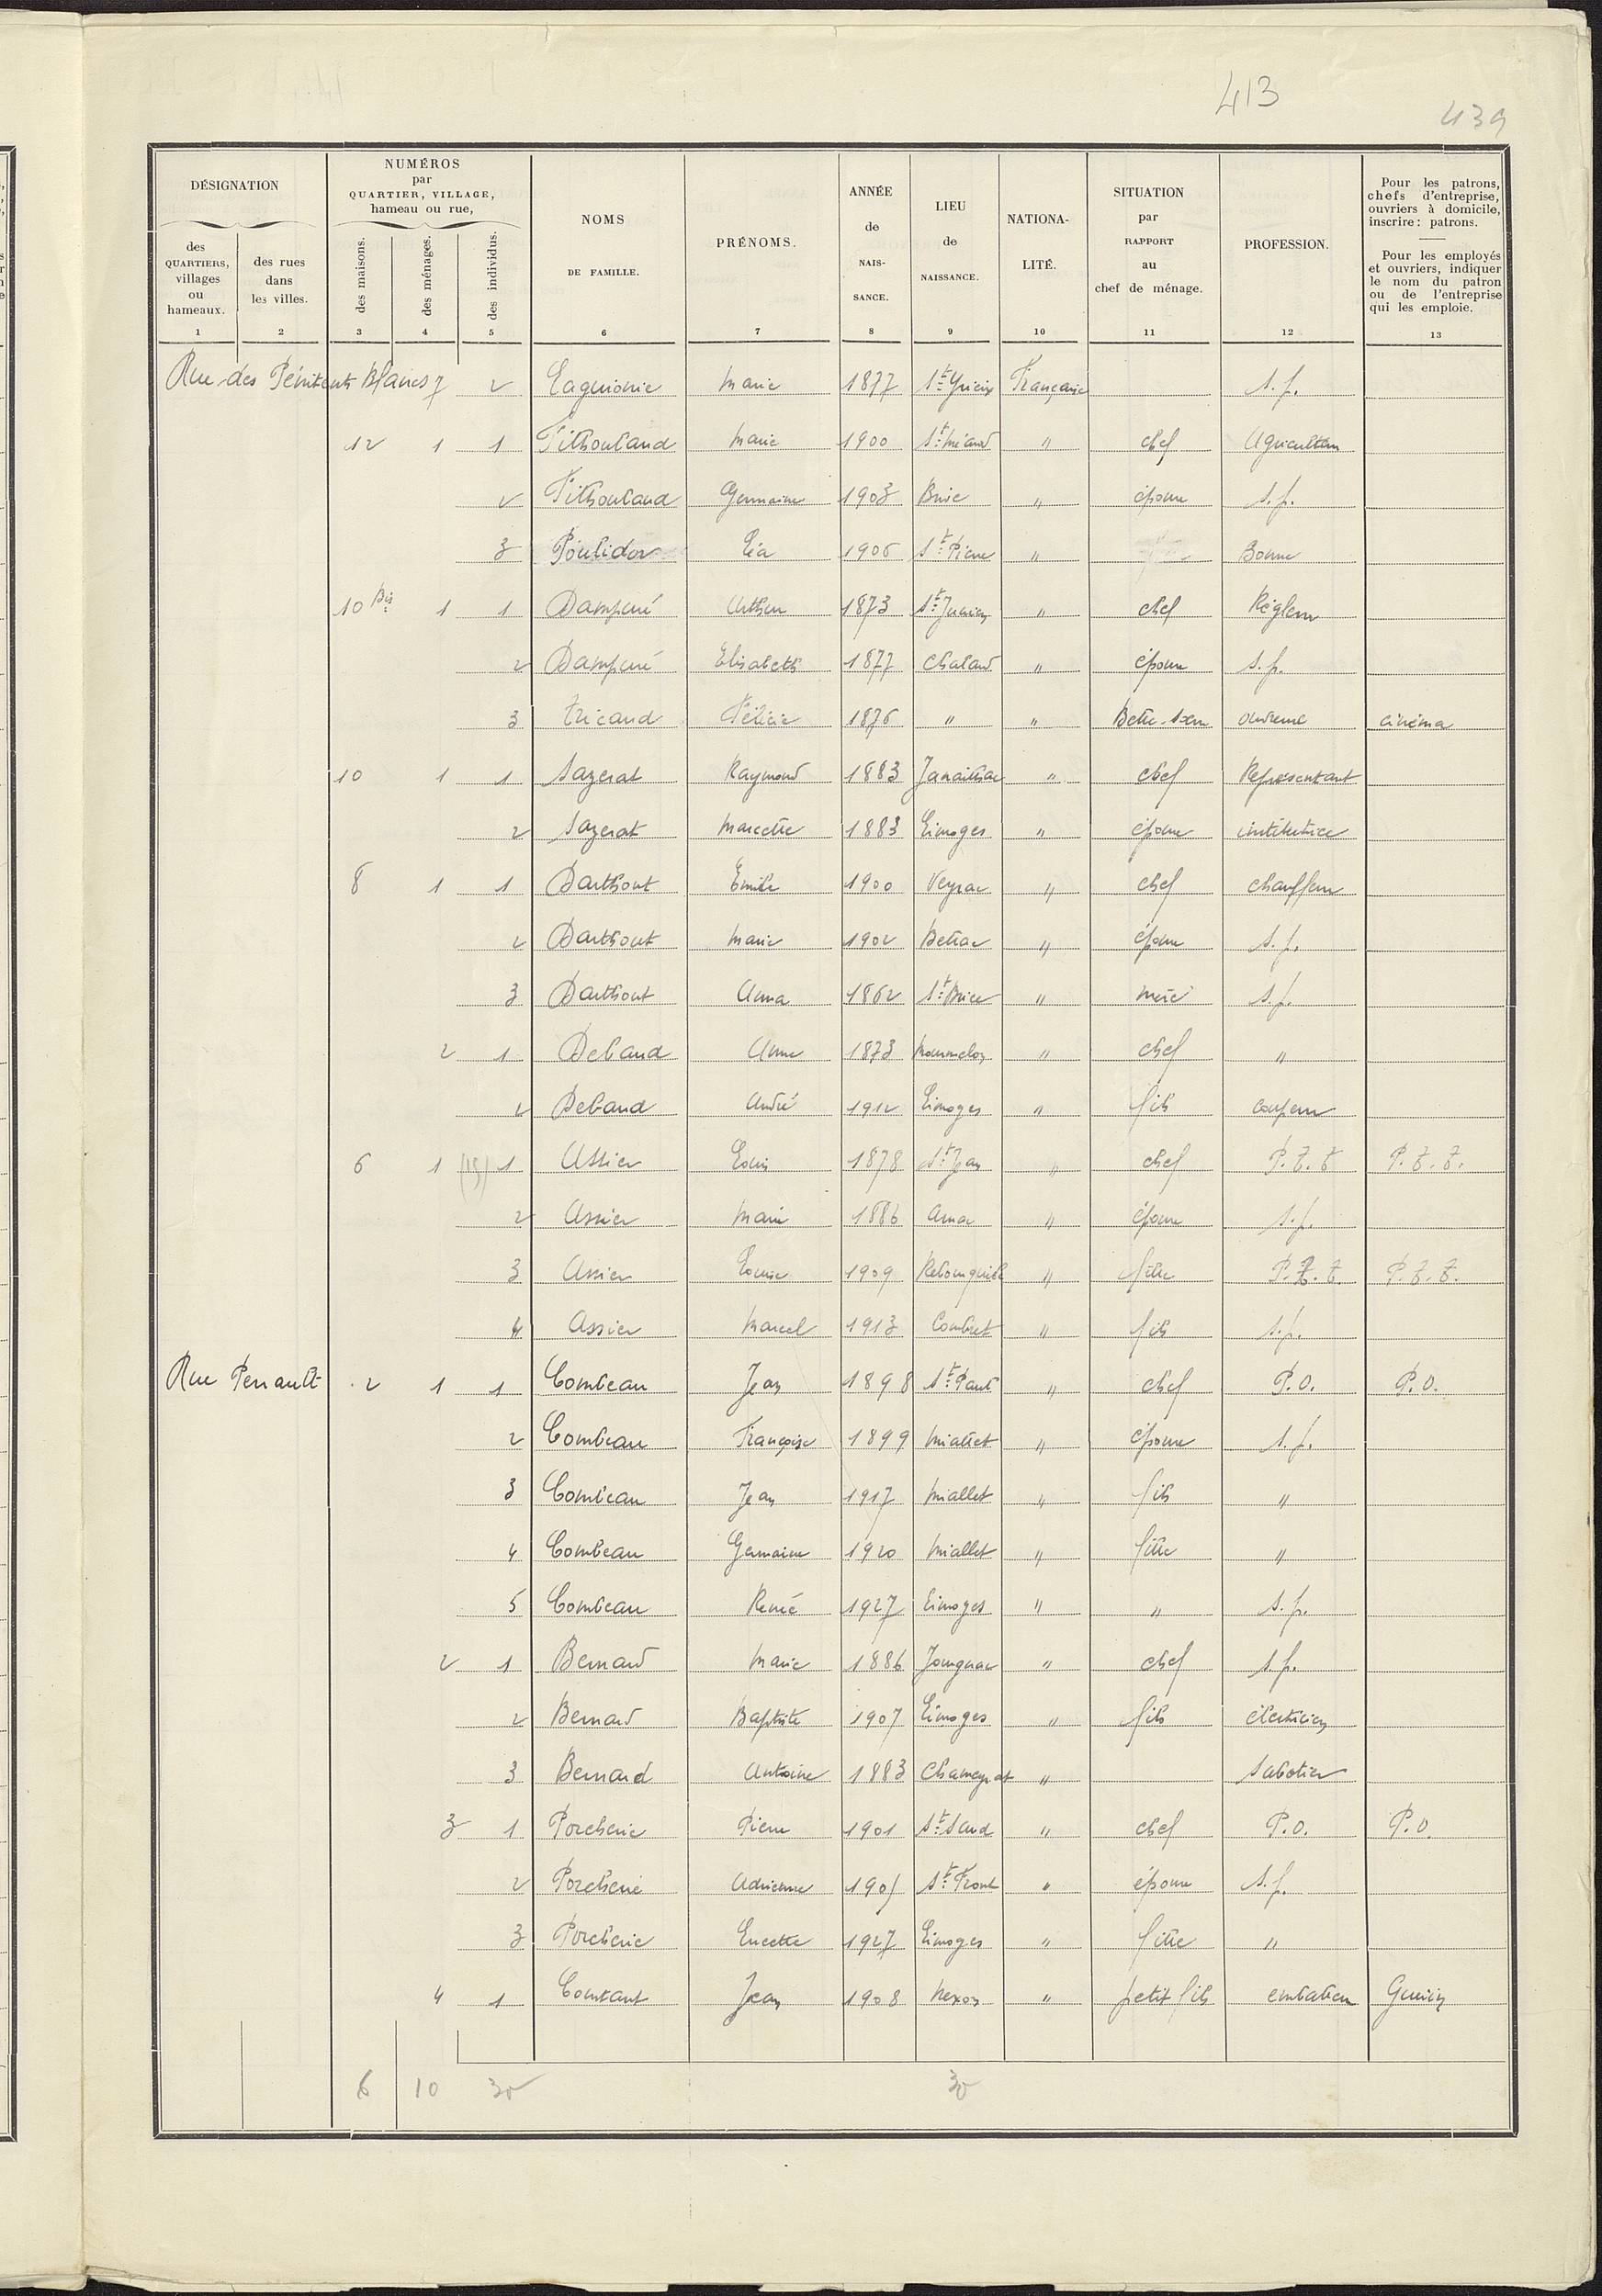 413
439
DÉSIGNATION
des QUARTIERS, villages ou hameaux.
des rues dans les villes.
NUMÉROS par QUARTIER, VILLAGE, hameau ou rue,
des maisons.
des ménages.
des individus.
NOMS DE FAMILLE.
PRÉNOMS.
ANNÉE de NAIS-SANCE.
LIEU de NAISSANCE.
NATIONA-LITÉ.
SITUATION par RAPPORT au chef de ménage.
PROFESSION.
Pour les patrons, chefs d'entreprise, ouvriers à domicile, inscrire: patrons.
Pour les employés et ouvriers, indiquer le nom du patron ou de l'entreprise qui les emploie.
1 2 3 4 5 6 7 8 9 10 11 12 13
Rue des Pénitents Blancs 7 2 Laguionie Marie 1877 St Yrieix Française s.p.
12 1 1 Tithouland Marie 1900 St Méard " chef Agriculteur
2 Tithouland Germaine 1903 Brie " épouse s.p.
3 Poulidor Léa 1906 St Pierre " Bonne
10 Bis 1 1 Dampuré Arthur 1873 St Junien " chef Régleur
2 Dampuré Elisabeth 1877 Chalard " épouse s.p.
3 Tricaud Félicie 1876 " " Belle-soeur ouvreuse cinéma
10 1 1 Sazerat Raymond 1883 Janailhac " chef Représentant
2 Sazerat Marcelle 1883 Limoges " épouse institutrice
8 1 1 Darthout Emile 1900 Veyrac " chef chauffeur
2 Darthout Marie 1902 Bellac " épouse s.p.
3 Darthout Anna 1862 St Brice " mère s.p.
2 1 Debaud Anne 1873 " chef "
2 Debaud André 1912 Limoges " fils coupeur
6 1 (15) 1 Assier Louis 1878 St Jean " chef P.T.T P.T.T.
2 Assier Marie 1886 Arnac " épouse s.p.
3 Assier Louise 1909 Rebourguil " fille P.T.T. P.T.T.
4 Assier Marcel 1913 Combret " fils s.p.
Rue Perrault 2 1 1 Combeau Jean 1898 St Paul " chef P.O. P.O.
2 Combeau Françoise 1899 Miallet " épouse s.p.
3 Combeau Jean 1917 Miallet " fils "
4 Combeau Germaine 1920 Miallet " fille "
5 Combeau René 1927 Limoges " " s.p.
2 1 Bernard Marie 1886 Jourgnac " chef s.p.
2 Bernard Baptiste 1907 Limoges " fils électricien
3 Bernard Antoine 1883 Chameyrat " Sabotier
3 1 Porcherie Pierre 1901 St Saud " chef P.O. P.O.
2 Porcherie Adrienne 1905 St Front " épouse s.p.
3 Porcherie Lucette 1927 Limoges " fille "
4 1 Coutant Jean 1908 Nexon " petit fils emballeur Guérin
6 10 30 30